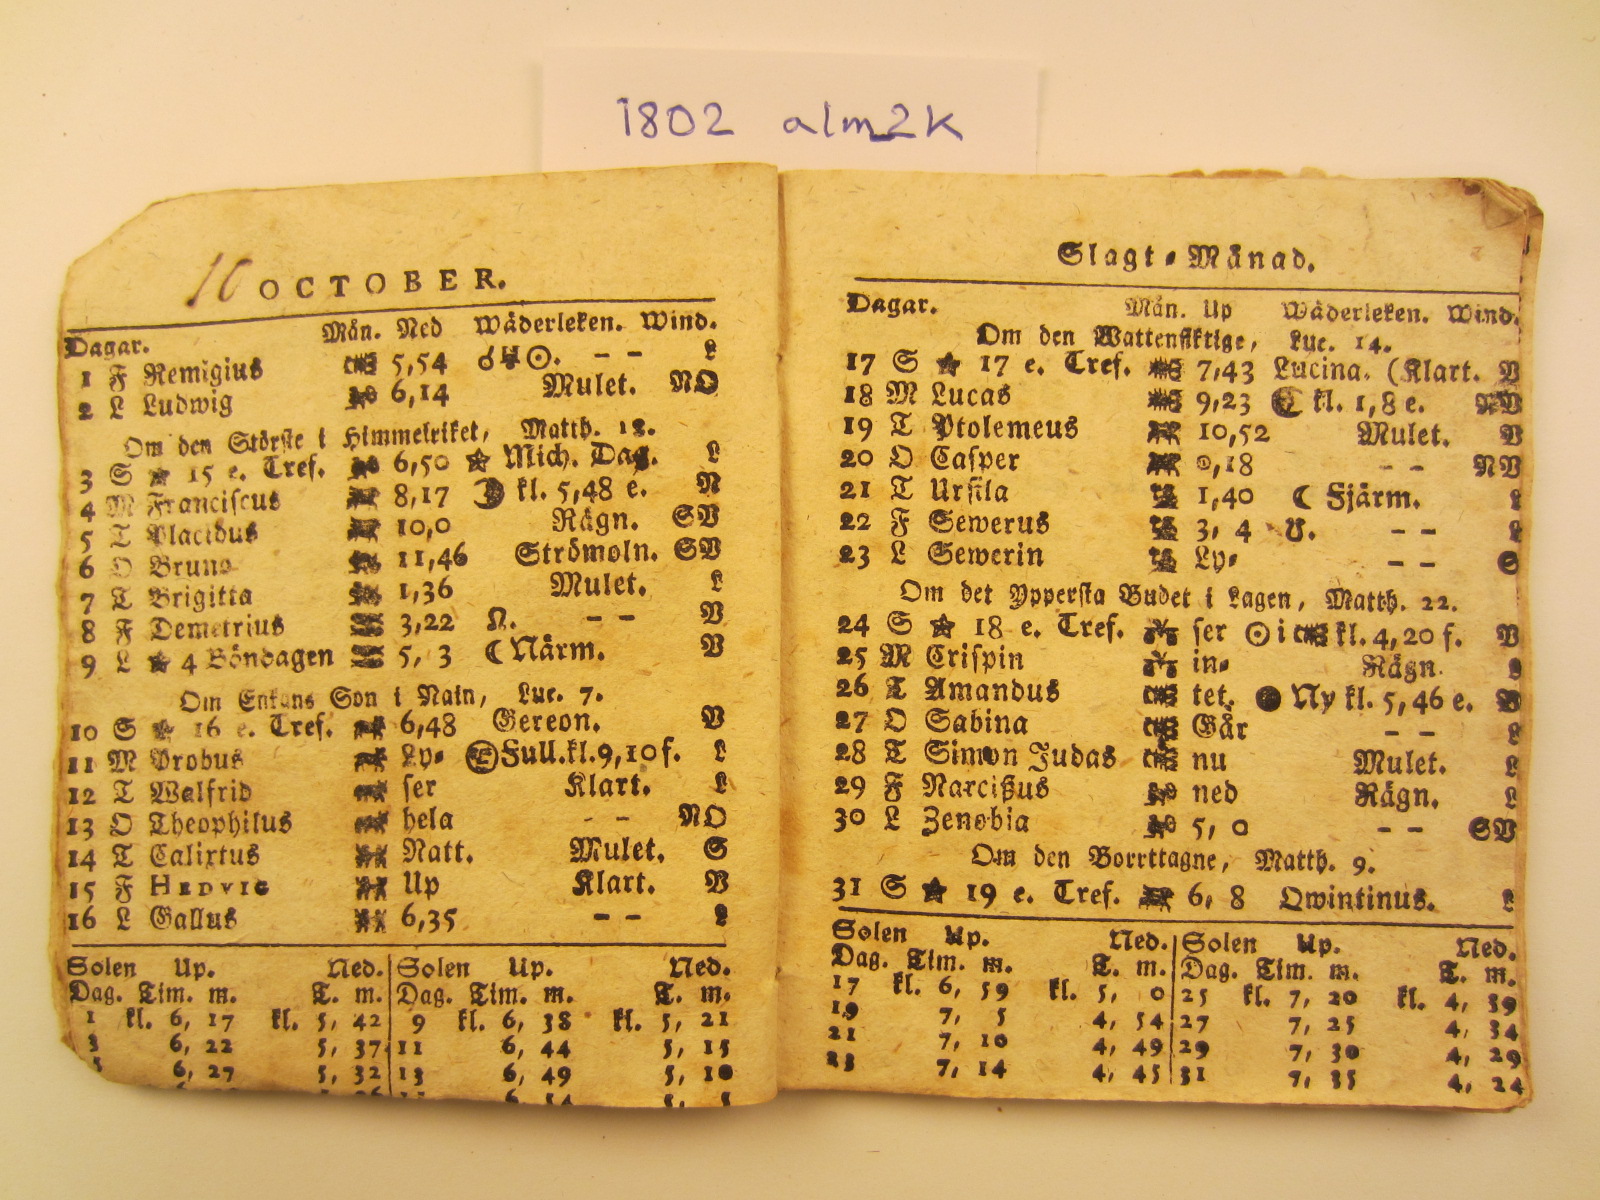 1802 alm2k
10 OCTOBER.
Dagar. Mån. Ned Wäderleken. Wind.
1 F Remigius 5,54 ☌♅☉. – – L
2 L Ludwig 6,14 Mulet. NO
Om den Störste i Himmelriket, Matth. 18.
3 S ★ 15 e. Tref. 6,50 ★ Mich. Dag. L
4 M Franciscus 8,17 kl. 5,48 e. N
5 T Placidus 10,0 Rägn. SV
6 O Bruno 11,46 Strömoln. SV
7 T Brigitta 1,36 Mulet. L
8 F Demetrius 3,22 ☊. – – V
9 L ★ 4 Böndagen 5, 3 ☾ Närm. V
Om Enkans Son i Nain, Luc. 7.
10 S ★ 16 e. Tref. 6,48 Gereon. V
11 M Probus Ly- Full.kl.9,10f. L
12 T Walfrid ser Klart. L
13 O Theophilus hela – – NO
14 T Calixtus Natt. Mulet. S
15 F HEDVIG Up Klart. V
16 L Gallus 6,35 – – L
Solen Up. Ned. Solen Up. Ned.
Dag. Tim. m. T. m. Dag. Tim. m. T. m.
1 kl. 6, 17 kl. 5, 42 9 kl. 6, 38 kl. 5, 21
3 6, 22 5, 37 11 6, 44 5, 15
5 6, 27 5, 32 13 6, 49 5, 10
6, 54 5, 5
Slagt-Månad.
Dagar. Mån. Up Wäderleken. Wind.
Om den Wattensiktige, Luc. 14.
17 S ★ 17 e. Tref. 7,43 Lucina. (Klart. V
18 M Lucas 9,23 kl. 1,8 e. NV
19 T Ptolemeus 10,52 Mulet. V
20 O Casper 0,18 – – NV
21 T Ursila 1,40 ☾ Fjärm. L
22 F Sewerus 3, 4 ☋. – – L
23 L Sewerin Ly- – – S
Om det Yppersta Budet i Lagen, Matth. 22.
24 S ★ 18 e. Tref. ser ☉ i kl. 4,20 f. V
25 M Crispin in- Rägn.
26 T Amandus tet. ● Ny kl. 5,46 e.
27 O Sabina Går – – L
28 T Simon Judas nu Mulet. L
29 F Narcißus ned Rägn. L
30 L Zenobia 5, 0 – – SV
Om den Borrttagne, Matth. 9.
31 S ★ 19 e. Tref. 6, 8 Qwintinus. L
Solen Up. Ned. Solen Up. Ned.
Dag. Tim. m. T. m. Dag. Tim. m. T. m.
17 kl. 6, 59 kl. 5, 0 25 kl. 7, 20 kl. 4, 39
19 7, 5 4, 54 27 7, 25 4, 34
21 7, 10 4, 49 29 7, 30 4, 29
23 7, 14 4, 45 31 7, 35 4, 24